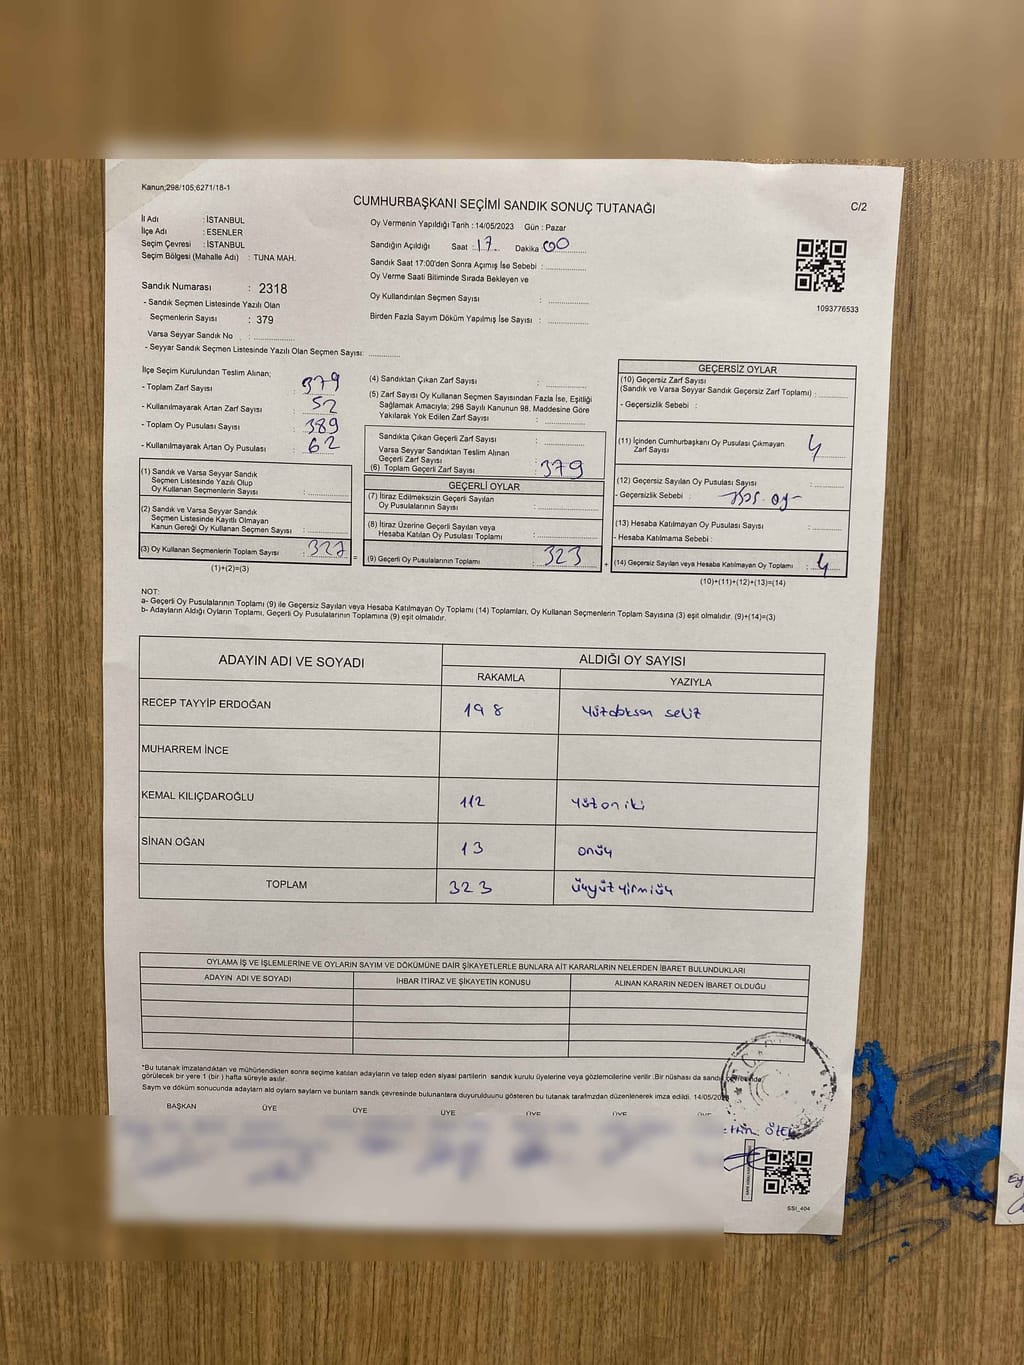 Kanun;298/105;6271/18-1
CUMHURBAŞKANI SEÇİMİ SANDIK SONUÇ TUTANAĞI
C/2
İl Adı : İSTANBUL
İlçe Adı : ESENLER
Seçim Çevresi : İSTANBUL
Seçim Bölgesi (Mahalle Adı) : TUNA MAH.
Oy Vermenin Yapıldığı Tarih : 14/05/2023 Gün : Pazar
Sandığın Açıldığı Saat : 17 Dakika : 00
Sandık Saat 17:00'den Sonra Açımış İse Sebebi :
Oy Verme Saati Bitiminde Sırada Bekleyen ve
Oy Kullandırılan Seçmen Sayısı :
Birden Fazla Sayım Döküm Yapılmış İse Sayısı :
1093776533
Sandık Numarası : 2318
- Sandık Seçmen Listesinde Yazılı Olan
Seçmenlerin Sayısı : 379
Varsa Seyyar Sandık No :
- Seyyar Sandık Seçmen Listesinde Yazılı Olan Seçmen Sayısı:
İlçe Seçim Kurulundan Teslim Alınan;
- Toplam Zarf Sayısı : 379
- Kullanılmayarak Artan Zarf Sayısı : 52
- Toplam Oy Pusulası Sayısı : 389
- Kullanılmayarak Artan Oy Pusulası : 62
(1) Sandık ve Varsa Seyyar Sandık
Seçmen Listesinde Yazılı Olup
Oy Kullanan Seçmenlerin Sayısı :
(2) Sandık ve Varsa Seyyar Sandık
Seçmen Listesinde Kayıtlı Olmayan
Kanun Gereği Oy Kullanan Seçmen Sayısı :
(3) Oy Kullanan Seçmenlerin Toplam Sayısı : 327
(1)+(2)=(3)
(4) Sandıktan Çıkan Zarf Sayısı :
(5) Zarf Sayısı Oy Kullanan Seçmen Sayısından Fazla İse, Eşitliği
Sağlamak Amacıyla; 298 Sayılı Kanunun 98. Maddesine Göre
Yakılarak Yok Edilen Zarf Sayısı :
Sandıkta Çıkan Geçerli Zarf Sayısı :
Varsa Seyyar Sandıktan Teslim Alınan
Geçerli Zarf Sayısı :
(6) Toplam Geçerli Zarf Sayısı : 379
GEÇERLİ OYLAR
(7) İtiraz Edilmeksizin Geçerli Sayılan
Oy Pusulalarının Sayısı :
(8) İtiraz Üzerine Geçerli Sayılan veya
Hesaba Katılan Oy Pusulası Toplamı :
=
(9) Geçerli Oy Pusulalarının Toplamı : 323
+
GEÇERSİZ OYLAR
(10) Geçersiz Zarf Sayısı
(Sandık ve Varsa Seyyar Sandık Geçersiz Zarf Toplamı) :
- Geçersizlik Sebebi :
(11) İçinden Cumhurbaşkanı Oy Pusulası Çıkmayan
Zarf Sayısı : 4
(12) Geçersiz Sayılan Oy Pusulası Sayısı :
- Geçersizlik Sebebi :
(13) Hesaba Katılmayan Oy Pusulası Sayısı :
- Hesaba Katılmama Sebebi :
(14) Geçersiz Sayılan veya Hesaba Katılmayan Oy Toplamı : 4
(10)+(11)+(12)+(13)=(14)
NOT:
a- Geçerli Oy Pusulalarının Toplamı (9) ile Geçersiz Sayılan veya Hesaba Katılmayan Oy Toplamı (14) Toplamları, Oy Kullanan Seçmenlerin Toplam Sayısına (3) eşit olmalıdır. (9)+(14)=(3)
b- Adayların Aldığı Oyların Toplamı, Geçerli Oy Pusulalarının Toplamına (9) eşit olmalıdır.
ADAYIN ADI VE SOYADI
ALDIĞI OY SAYISI
RAKAMLA YAZIYLA
RECEP TAYYİP ERDOĞAN 198 Yüzdoksan sekiz
MUHARREM İNCE
KEMAL KILIÇDAROĞLU 112 Yüzoniki
SİNAN OĞAN 13 onüç
TOPLAM 323 üçyüzyirmiüç
OYLAMA İŞ VE İŞLEMLERİNE VE OYLARIN SAYIM VE DÖKÜMÜNE DAİR ŞİKAYETLERLE BUNLARA AİT KARARLARIN NELERDEN İBARET BULUNDUKLARI
ADAYIN ADI VE SOYADI İHBAR İTİRAZ VE ŞİKAYETİN KONUSU ALINAN KARARIN NEDEN İBARET OLDUĞU
*Bu tutanak imzalandıktan ve mühürlendikten sonra seçime katılan adayların ve talep eden siyasi partilerin sandık kurulu üyelerine veya gözlemcilerine verilir .Bir nüshası da sandık çevresinde,
görülecek bir yere 1 (bir ) hafta süreyle asılır.
Sayım ve döküm sonucunda adayların ald oyların sayların ve bunların sandık çevresinde bulunanlara duyurulduunu gösteren bu tutanak tarafmzdan düzenlenerek imza edildi. 14/05/202
BAŞKAN ÜYE ÜYE ÜYE ÜYE ÜYE ÜYE
ÖZEL
SSİ_404